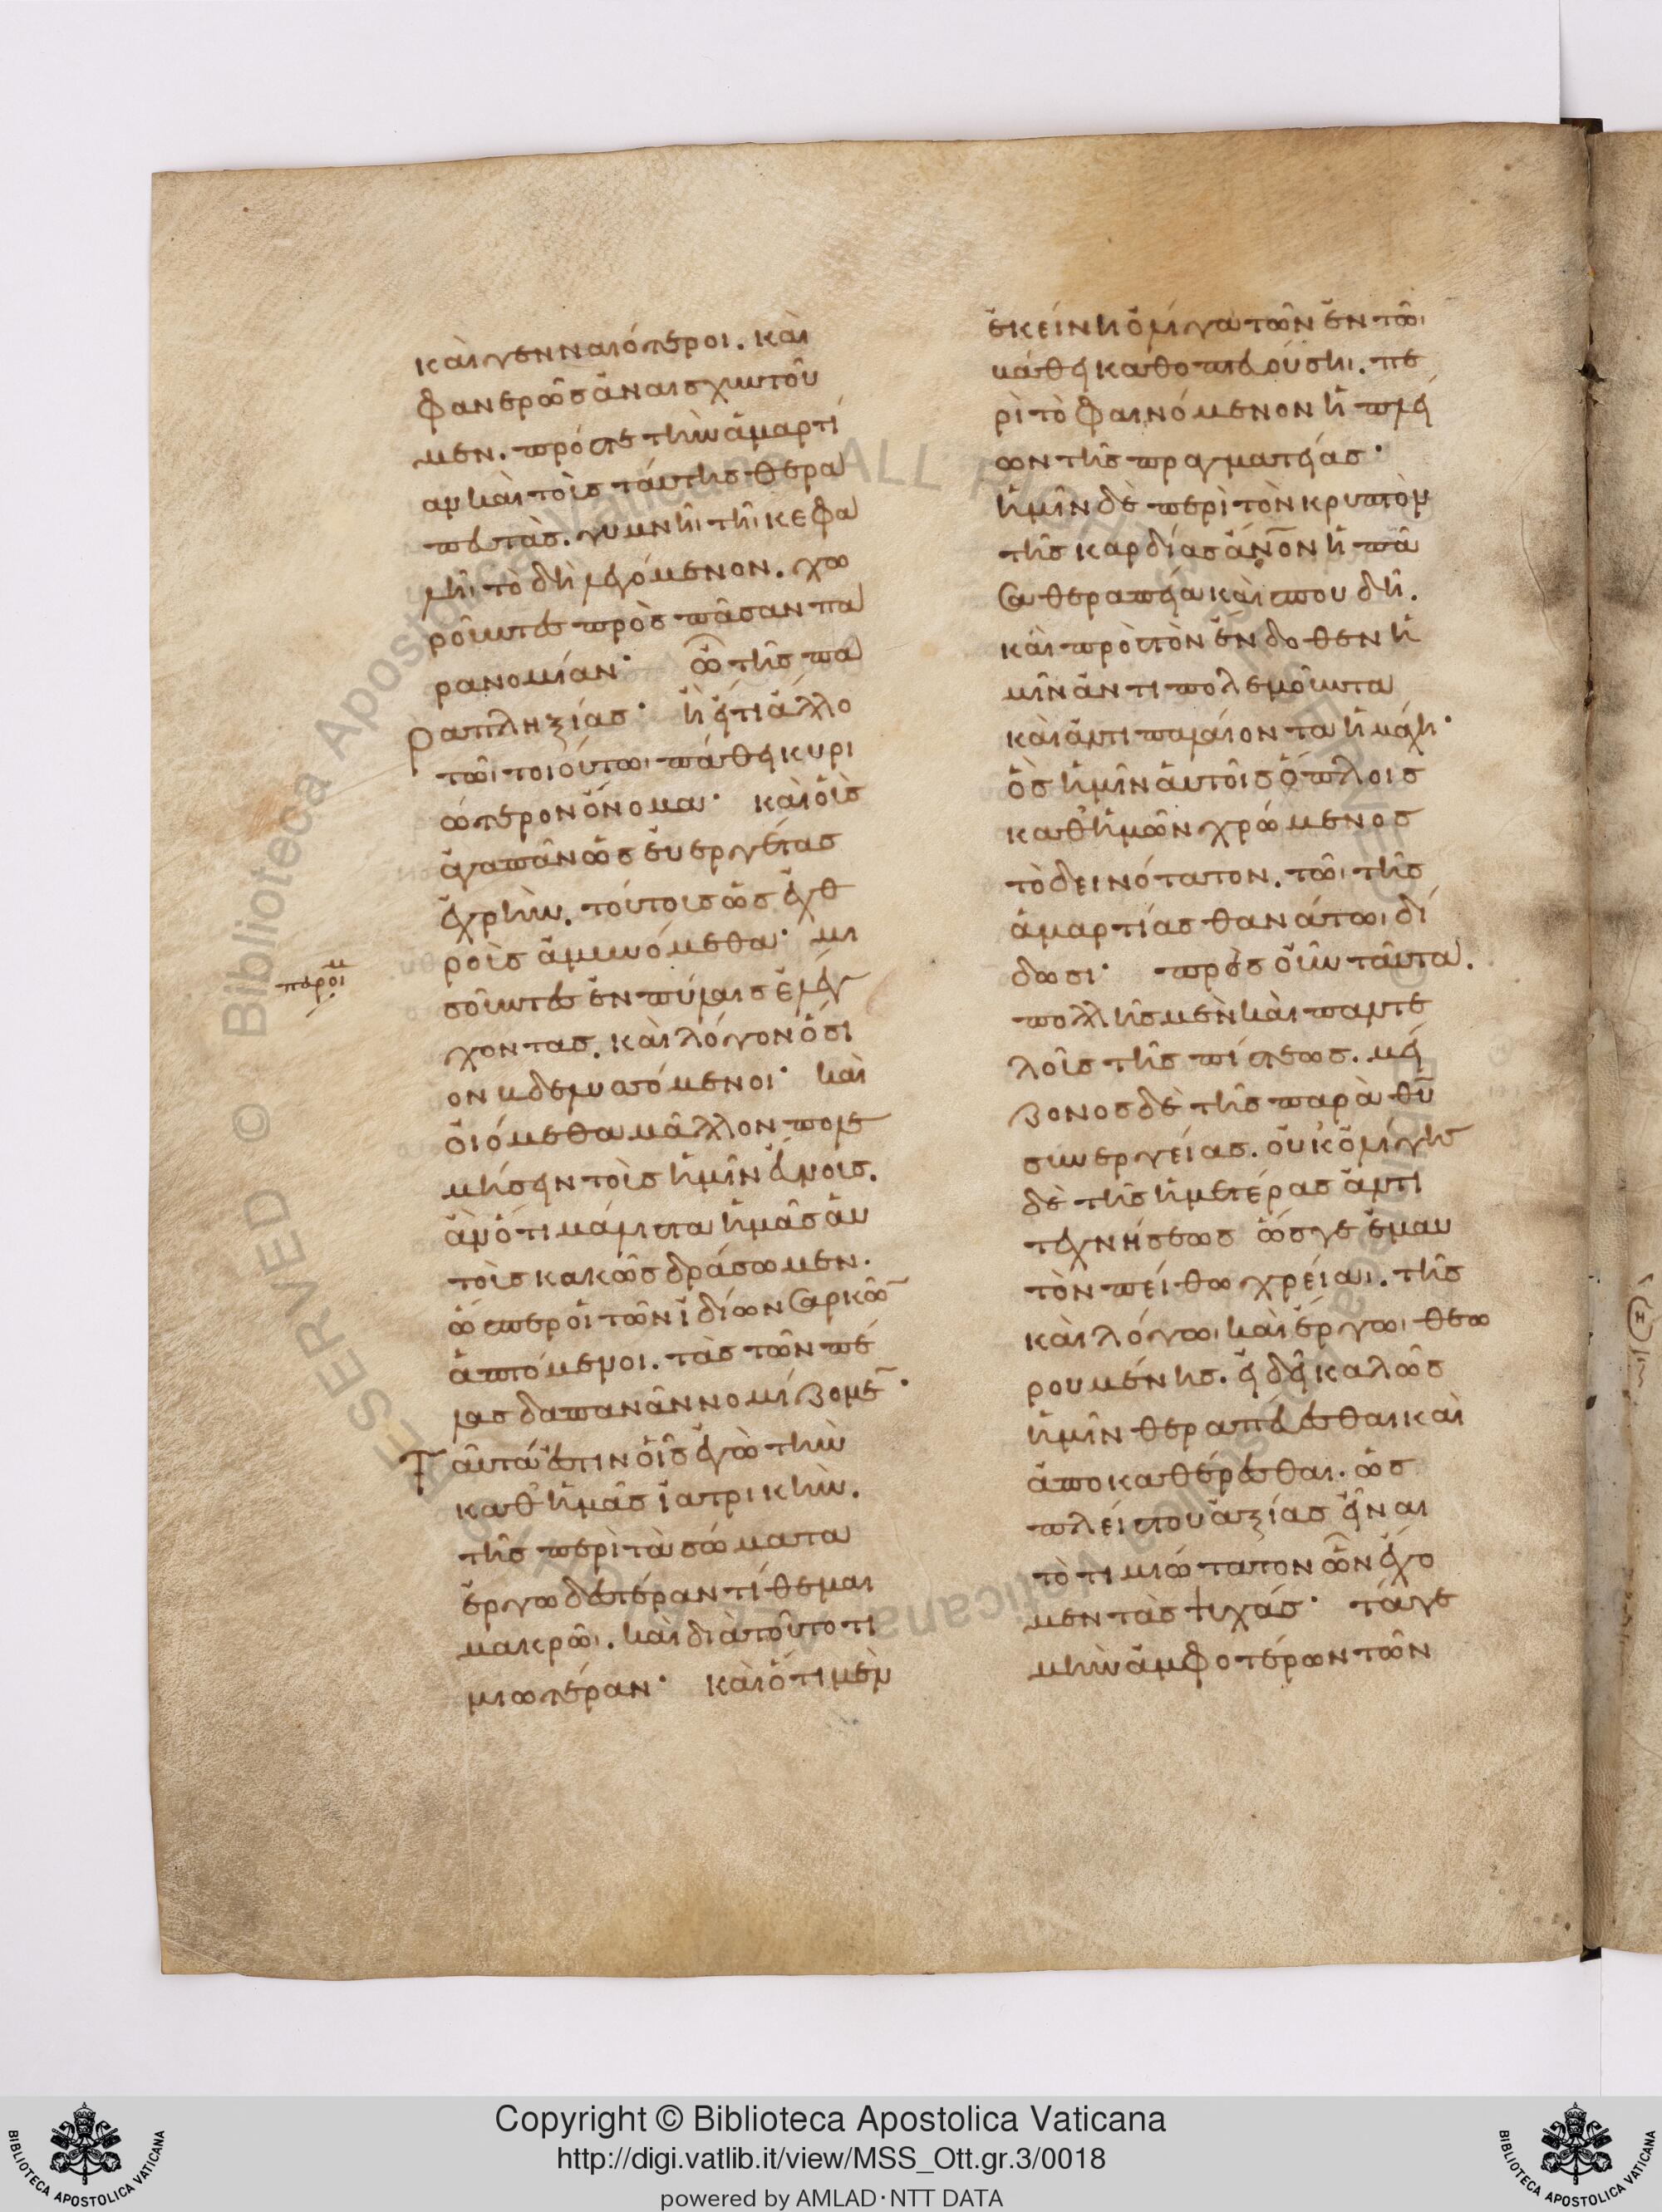 καὶ γενναιότεροι. καὶ
φανερῶς ἀναισχυντοῦ
μεν. πρός τε τὴν ἁμαρτί
αν καὶ τοὺς ταύτης θερα
πευτάς. γυμνῆι τῆι κεφα
λῆι τὸ δὴ λεγόμενον. χω
ροῦντες πρὸς πᾶσαν πα
ρανομίαν· ὢ τῆς πα
ραπληξίας· ἢ εἴ τι ἄλλο
τῶι τοιούτωι πάθει κυρι
ώτερον ὄνομα· καὶ οὓς
ἀγαπᾶν ὡς εὐεργέτας
ἐχρῆν. τούτους ὡς ἐχθ
ροὺς ἀμυνόμεθα· μι
σοῦντες ἐν πύλαις ἐλέγ
χοντας. καὶ λόγον ὅσι
ον βδελυττόμενοι· καὶ
οἰόμεθα μᾶλλον πολε
μήσειν τοῖς ἡμῖν εὔνοις.
ἂν ὅτι μάλιστα ἡμᾶς αὐ
τοὺς κακῶς δράσωμεν.
ὥσπερ οἱ τῶν ἰδίων σαρκῶ̅
ἁπτόμενοι. τὰς τῶν πέ
λας δαπανᾶν νομίζομε̅·
Ταῦτά ἐστιν οἷς ἐγὼ τὴν
καθ' ἡμᾶς ἰατρικὴν.
τῆς περὶ τὰ σώματα
ἐργωδεστέραν τίθεμαι
μακρῶι. καὶ διὰ τοῦτο τι
μιωτέραν· καὶ ὅτι μὲν
παροιμ
ἐκείνη ὀλίγα τῶν ἐν τῶι
βάθει κατοπτευούσηι. πε
ρὶ τὸ φαινόμενον ἡ πλεί
ων τῆς πραγματείας·
ἡμῖν δὲ περὶ τὸν κρυπτὸν
τῆς καρδίας ἄν̅ο̅ν̅ ἡ πᾶ
σα θεραπεία καὶ σπουδή.
καὶ πρὸς τὸν ἔνδοθεν ἡ
μῖν ἀντιπολεμοῦντα
καὶ ἀντιπαλαίοντα ἡ μάχη·
ὃς ἡμῖν αὐτοῖς ὅπλοις
καθ' ἡμῶν χρώμενος
τὸ δεινότατον. τῶι τῆς
ἁμαρτίας θανάτωι δί
δωσι· πρὸς οὖν ταῦτα.
πολλῆς μὲν καὶ παντε
λοῦς τῆς πίστεως. μεί
ζονος δὲ τῆς παρὰ θ̅υ̅
συνεργείας. οὐκ ὀλίγης
δὲ τῆς ἡμετέρας ἀντι
τεχνήσεως ὥς γε ἐμαυ
τὸν πείθω χρεία. τῆς
καὶ λόγωι καὶ ἔργωι θεω
ρουμένης. εἰ δεῖ καλῶς
ἡμῖν θεραπεύεσθαι καὶ
ἀποκαθαίρεσθαι. ὡς
πλείστου ἀξίας εἶναι
τὸ τιμιώτατον ὧν ἔχο
μεν τὰς ψυχάς· τά γε
μὴν ἀμφοτέρων τῶν
Copyright © Biblioteca Apostolica Vaticana
http://digi.vatlib.it/view/MSS_Ott.gr.3/0018
powered by AMLAD·NTT DATA
BIBLIOTECA APOSTOLICA VATICANA
BIBLIOTECA APOSTOLICA VATICANA